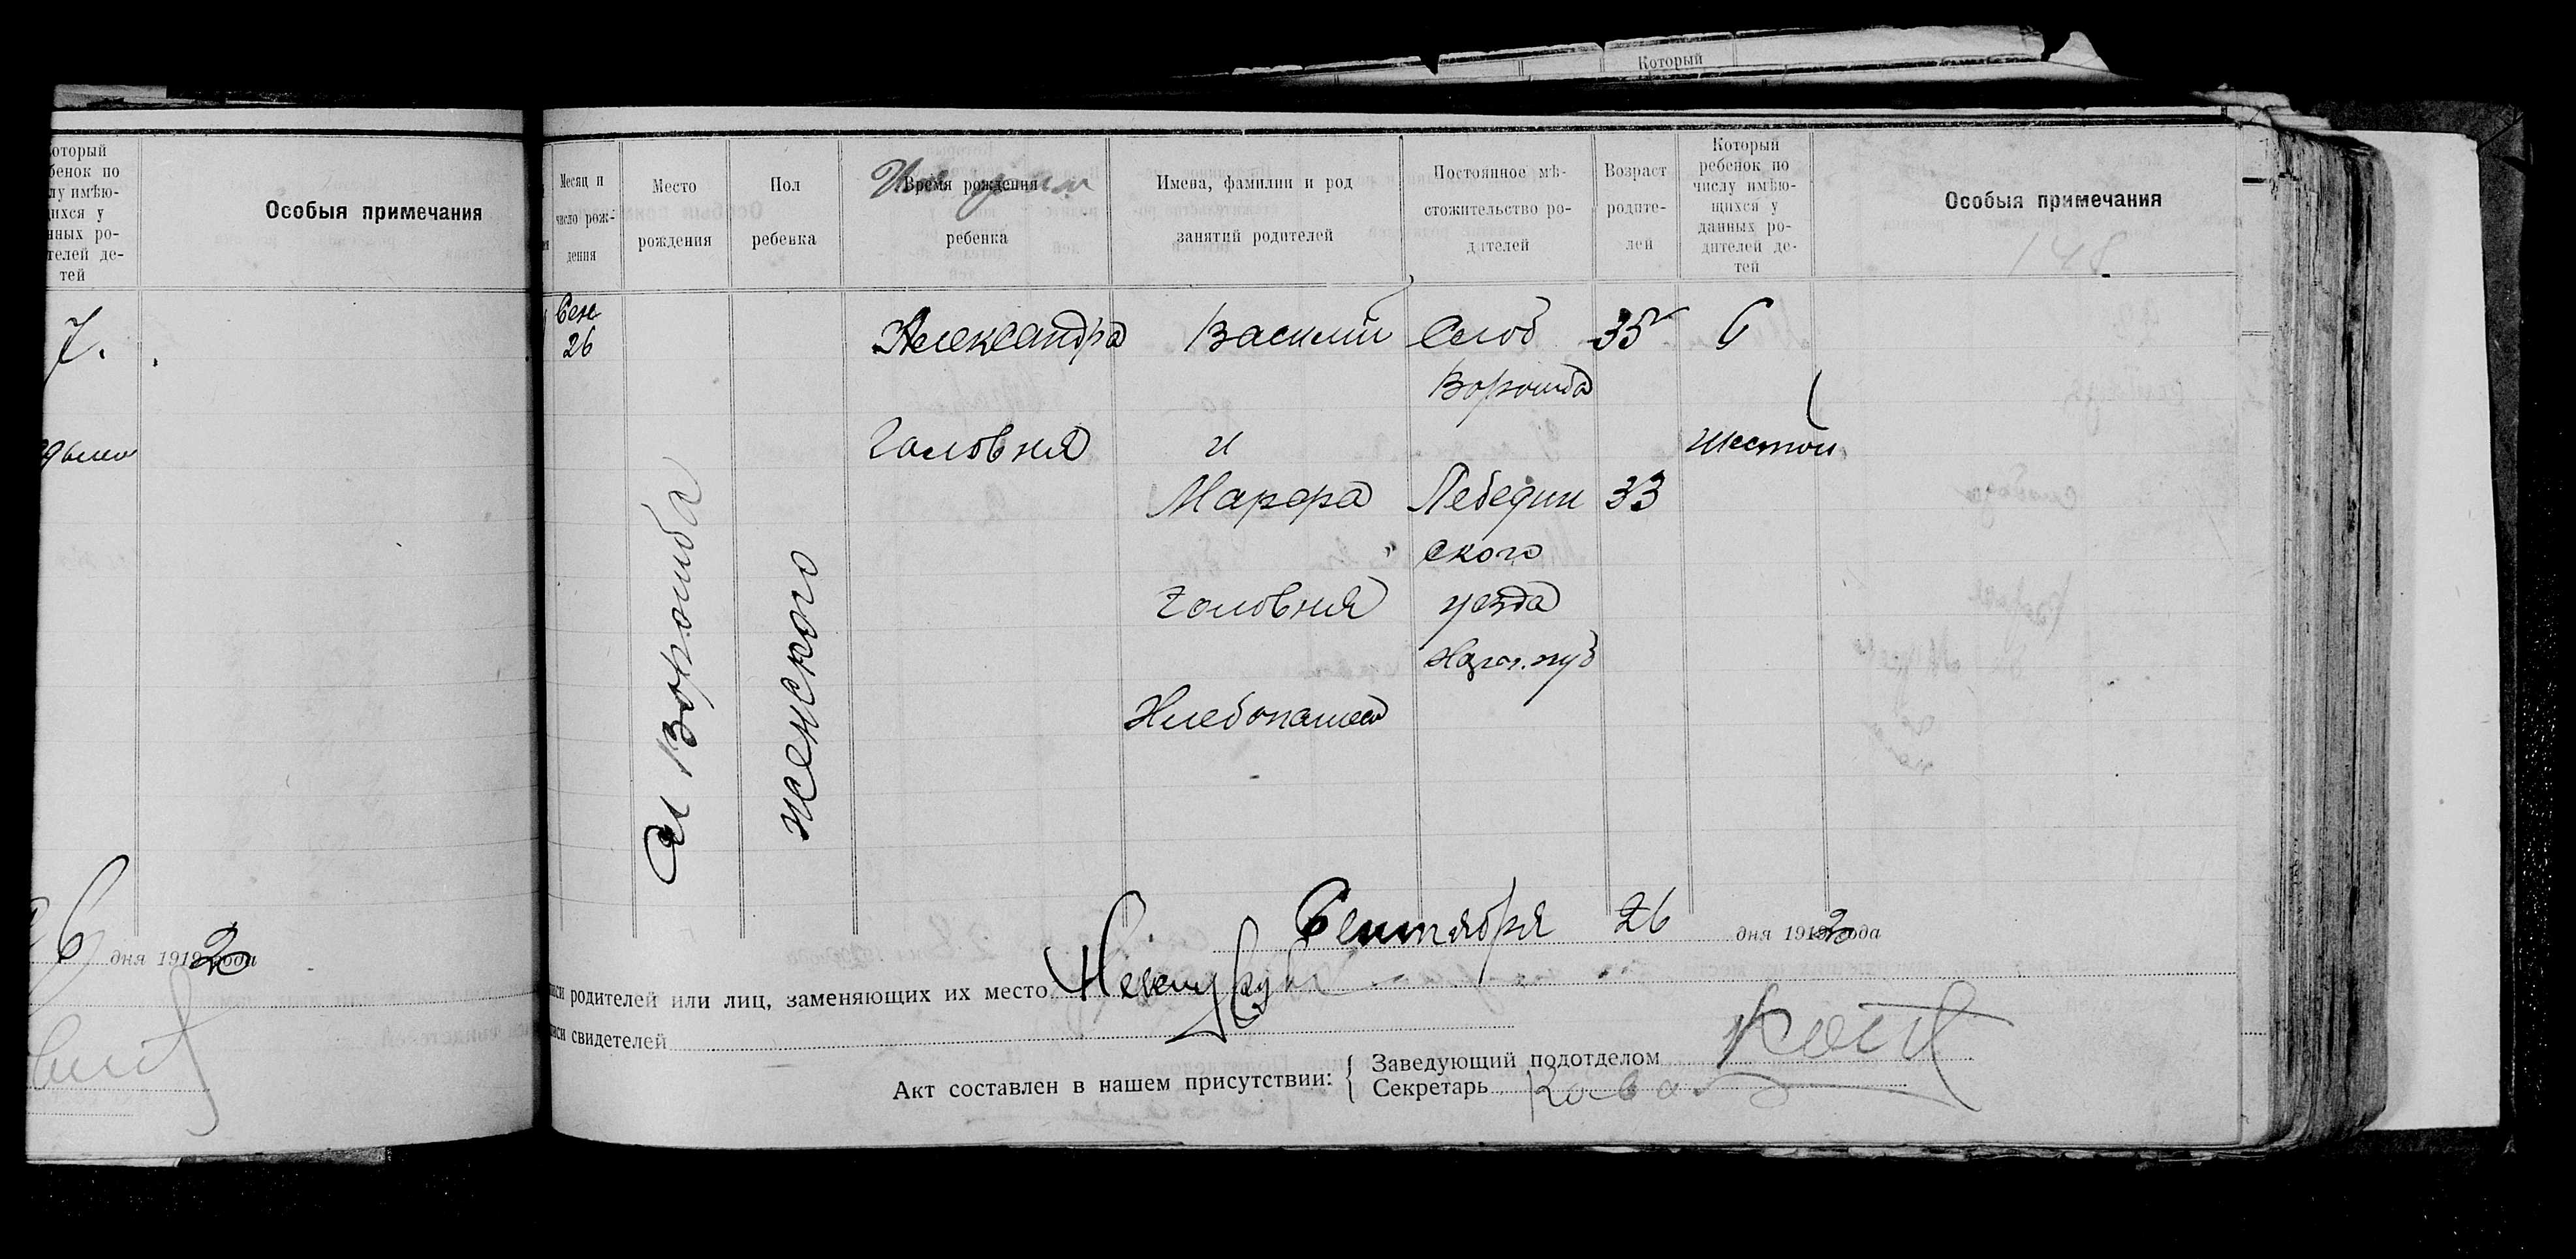 Который
оторый
бенок по
лу имѣю-
щихся у
нных ро-
телей де-
тей
Особыя примечания
7.
6 дня 1919 20 года
Месяц и
число рож-
дения
Место
рождения
Пол
ребенка
Время рождения
ребенка
Имена, фамилии и род
занятий родителей
Постоянное мѣ-
стожительство ро-
дителей
Возраст
родите-
лей
Который
ребенок по
числу имѣю-
щихся у
данных ро-
дителей де-
тей
Особыя примечания
148
Сен
26
Сл Ворошба
женского
Александра
Головня
Василий
и
Марфа
Головня
Хлебопашец
Слоб
Ворошба
Лебедин
ского
уезда
Харьк. губ
35
33
6
шестой
Сентября 26 дня 1919 20 года
иси родителей или лиц, заменяющих их место
иси свидетелей
Акт составлен в нашем присутствии:
Заведующий подотделом
Секретарь